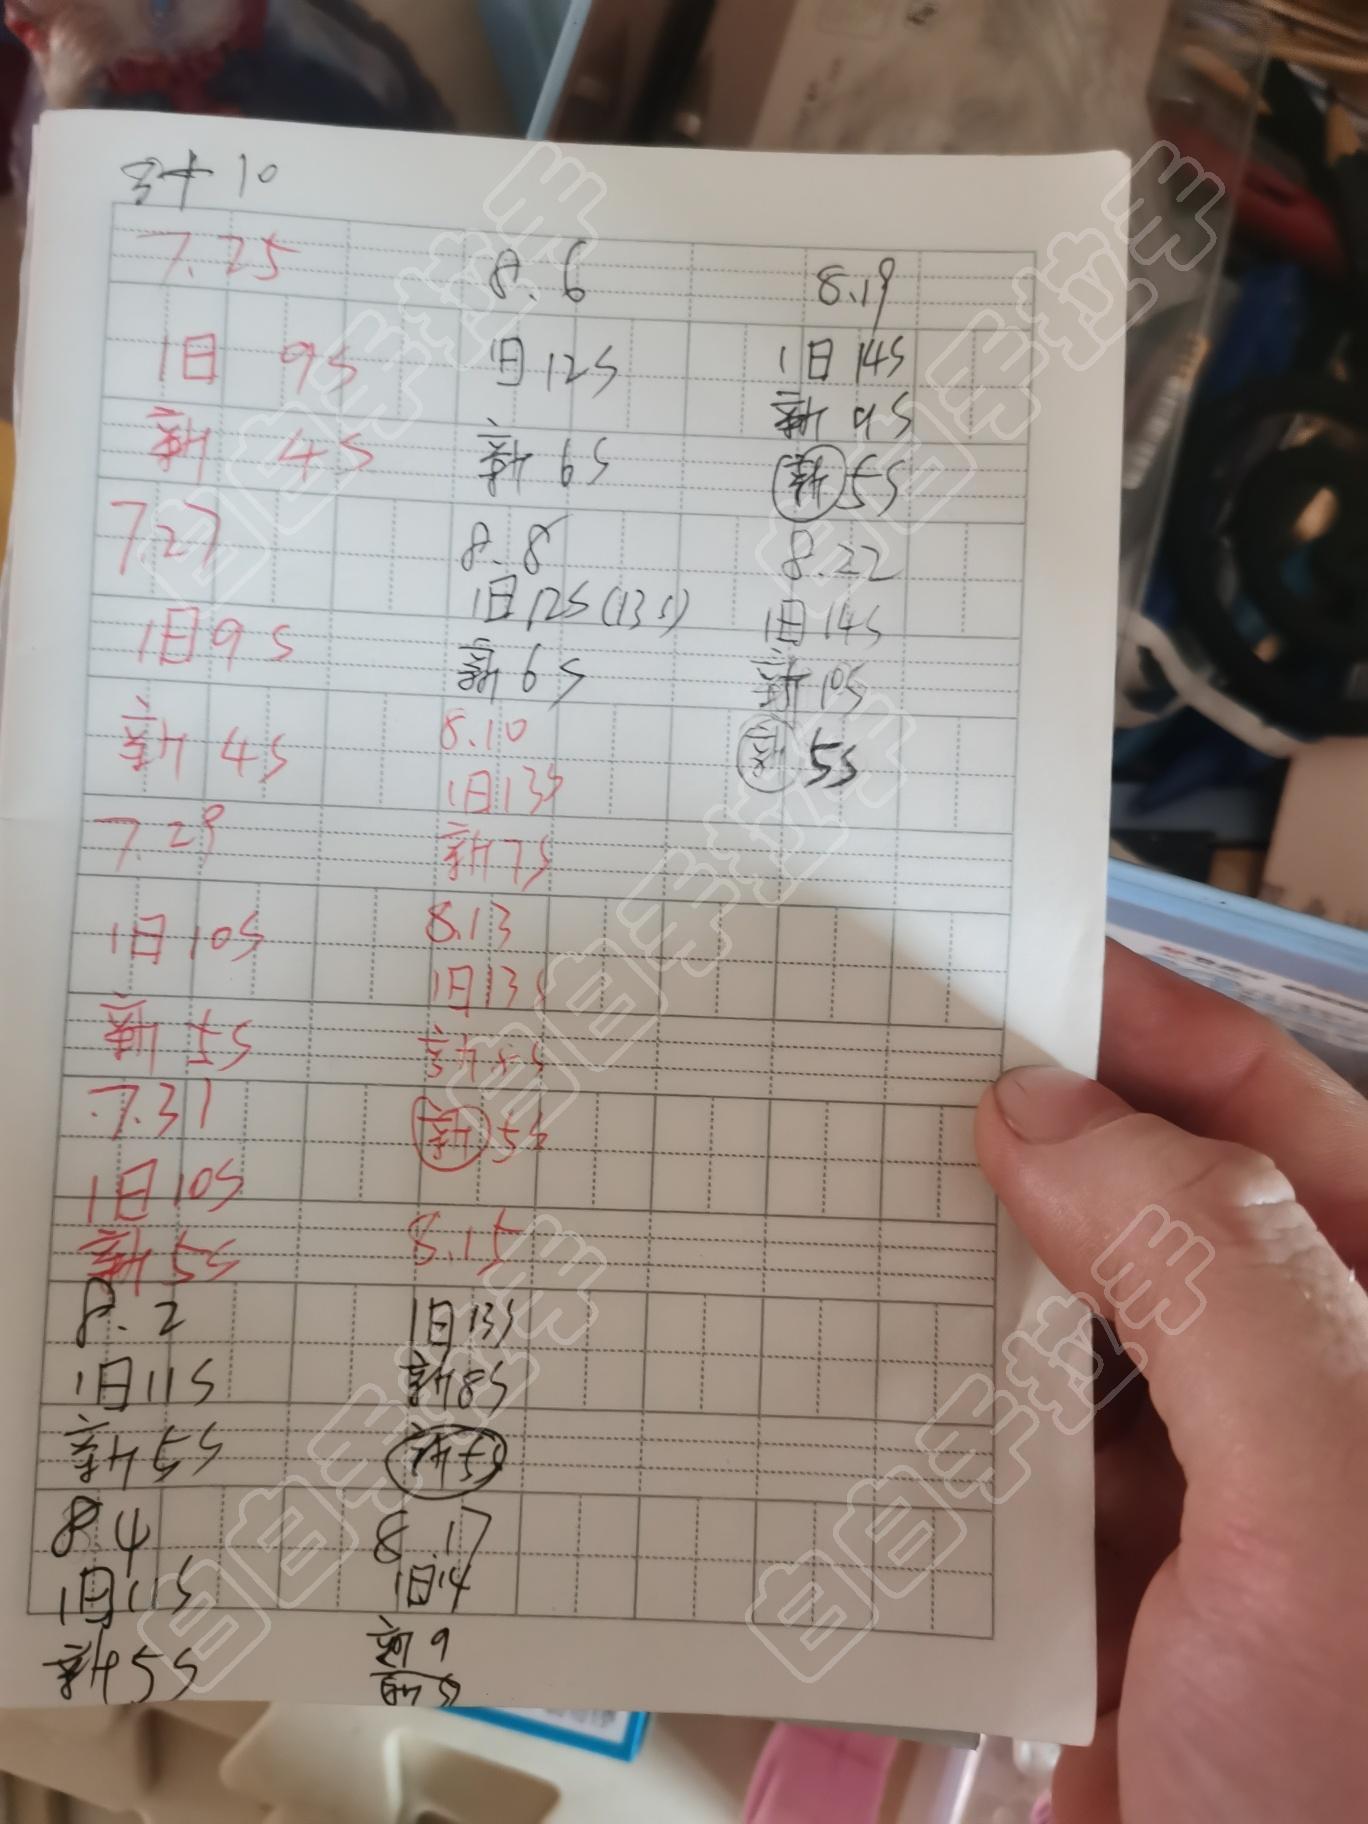 10
7.25
旧 9S
新 4S
7.27
旧 9S
新 4S
7.29
旧 10S
新 5S
7.31
旧 10S
新 5S
8.2
旧 11S
新 5S
8.4
旧 11S
新 5S
8.6
旧 12S
新 6S
8.8
旧 12S (13S)
新 6S
8.10
旧 13S
新 7S
8.13
旧 13S
新 5S
8.15
旧 13S
新 8S
新 5S
8.17
旧 14
新 9
8.19
旧 14S
新 9S
新 5S
8.22
旧 14S
新 10S
新 5S